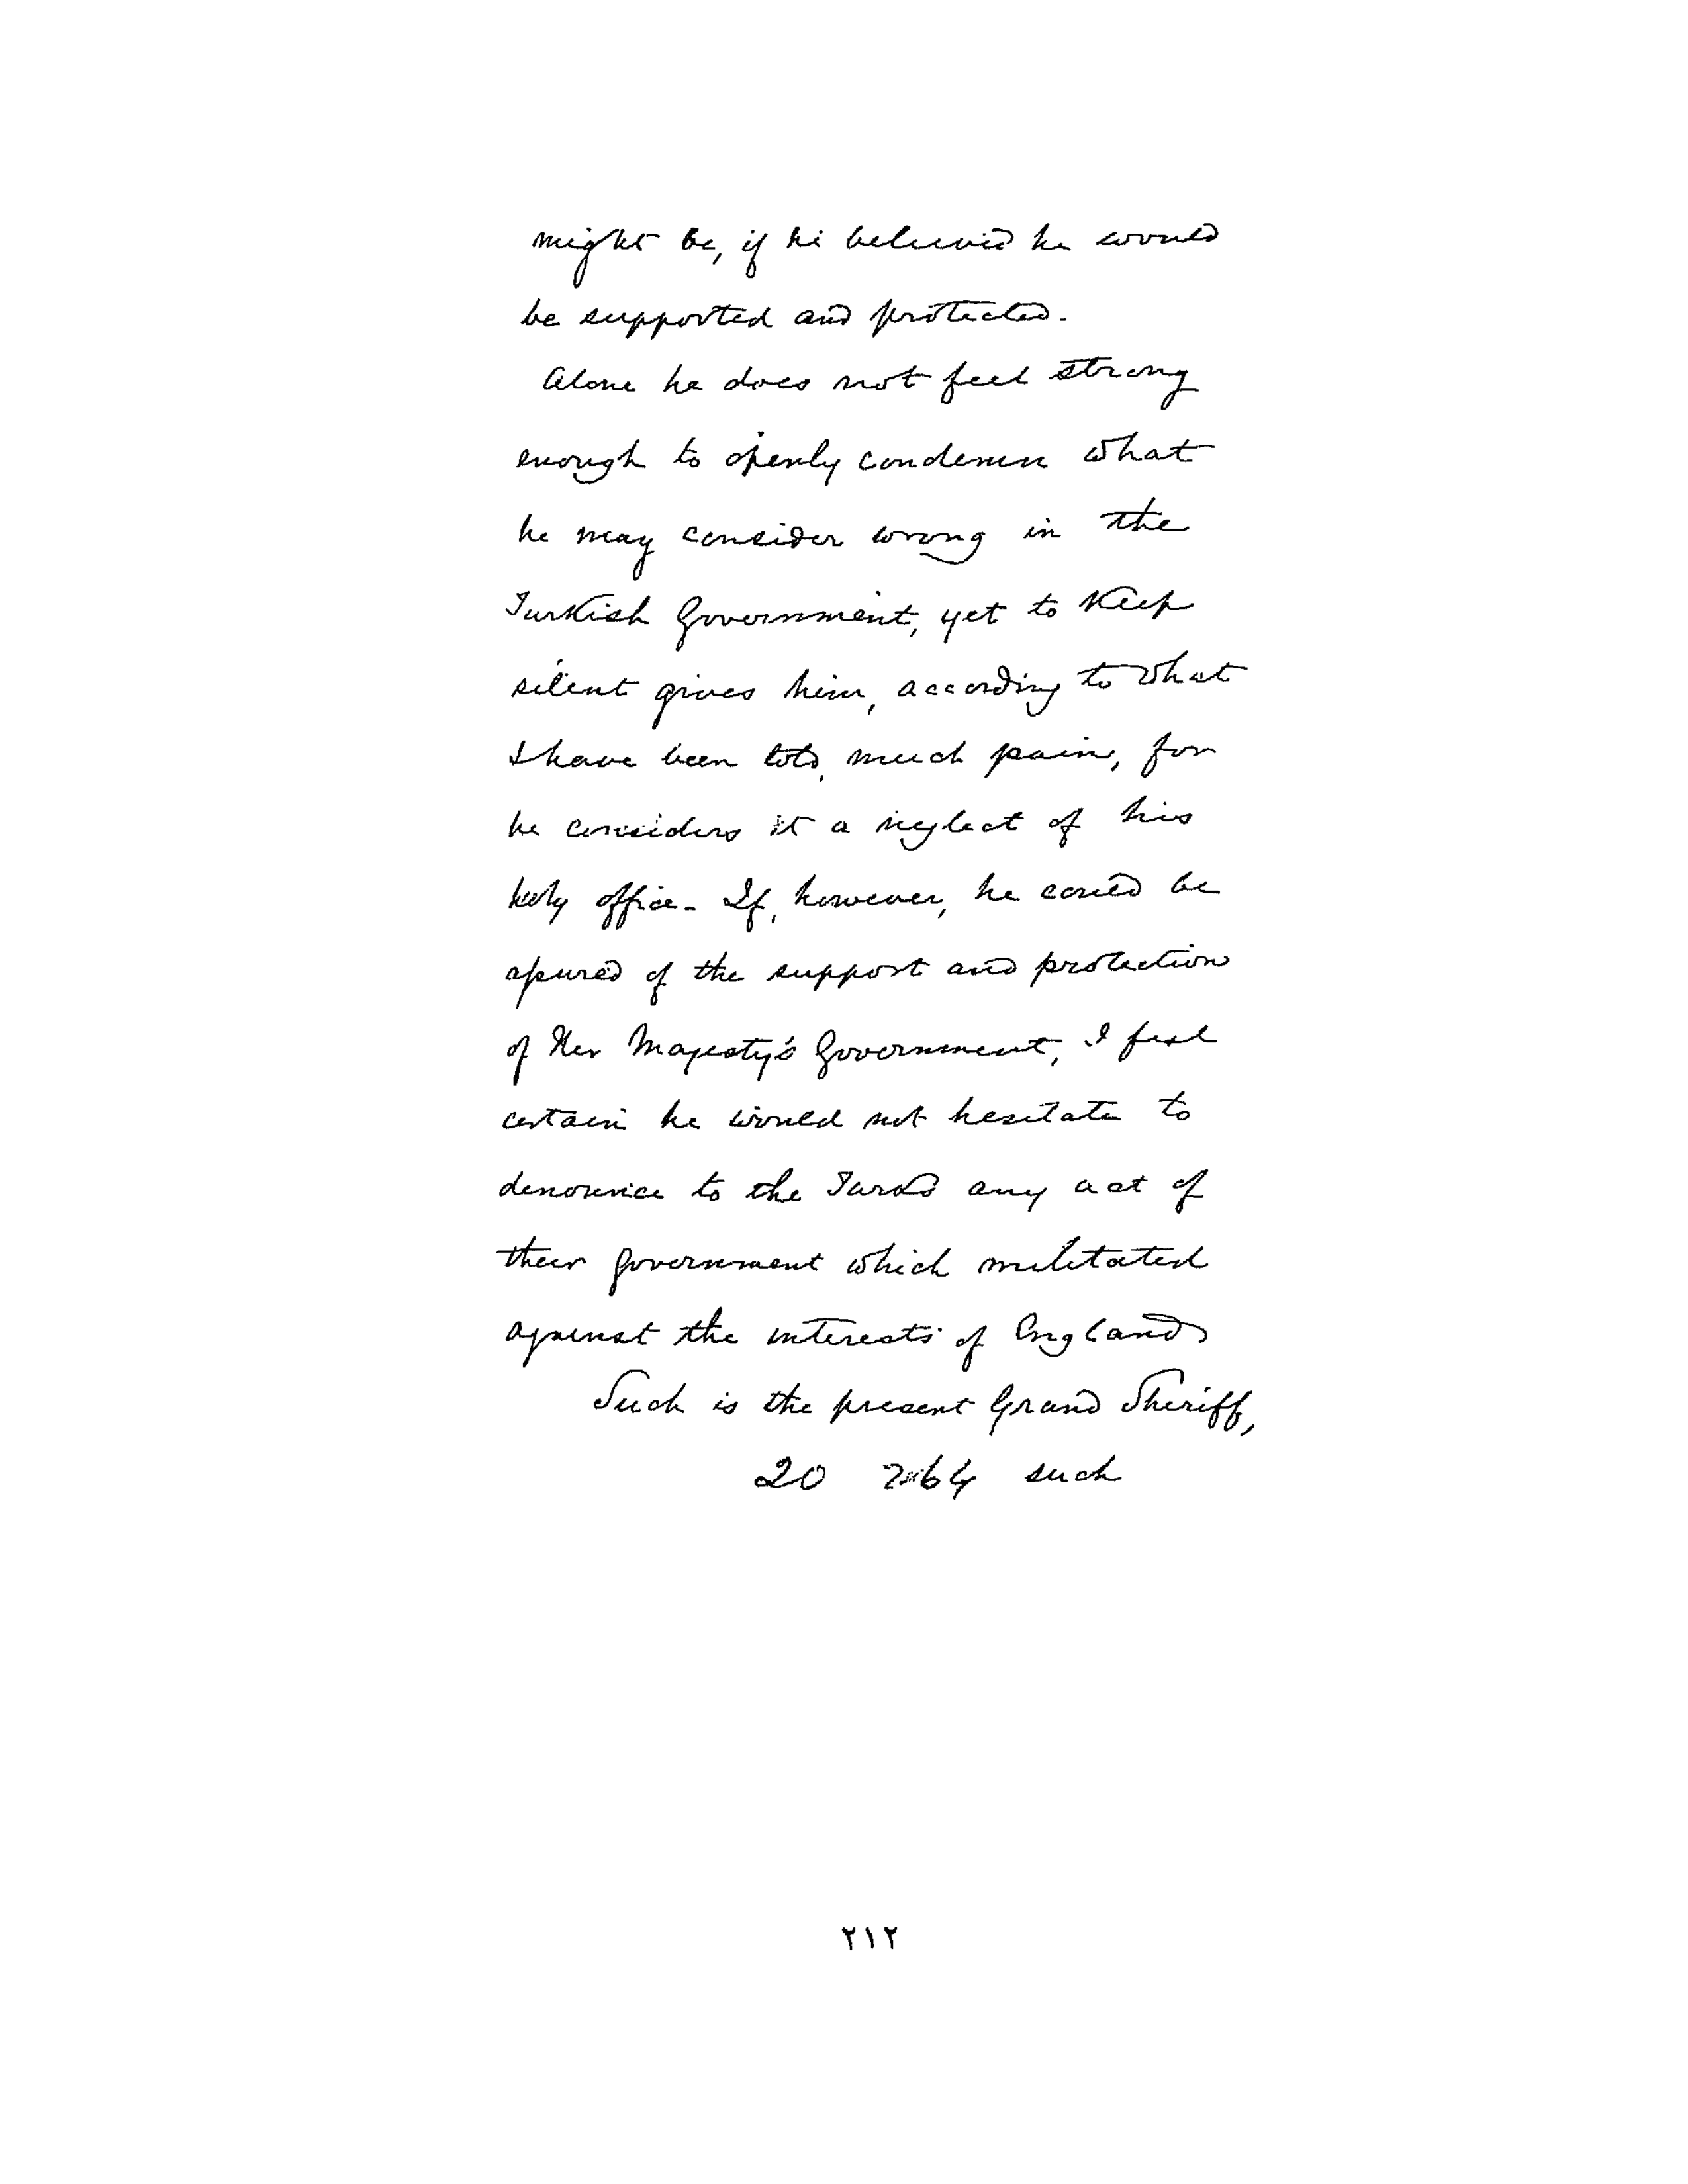 might be, if he believed he would
be supported and protected.
Alone he does not feel strong
enough to openly condemn what
he may consider wrong in the
Turkish Government, yet to keep
silent gives him, according to what
I have been told, much pain, for
he considers it a neglect of his
holy office - If, however, he could be
assured of the support and protection
of Her Majesty's Government, I feel
certain he would not hesitate to
denounce to the Turks any act of
their government which militated
against the interests of England
Such is the present Grand Sheriff,
20 such
٢١٢